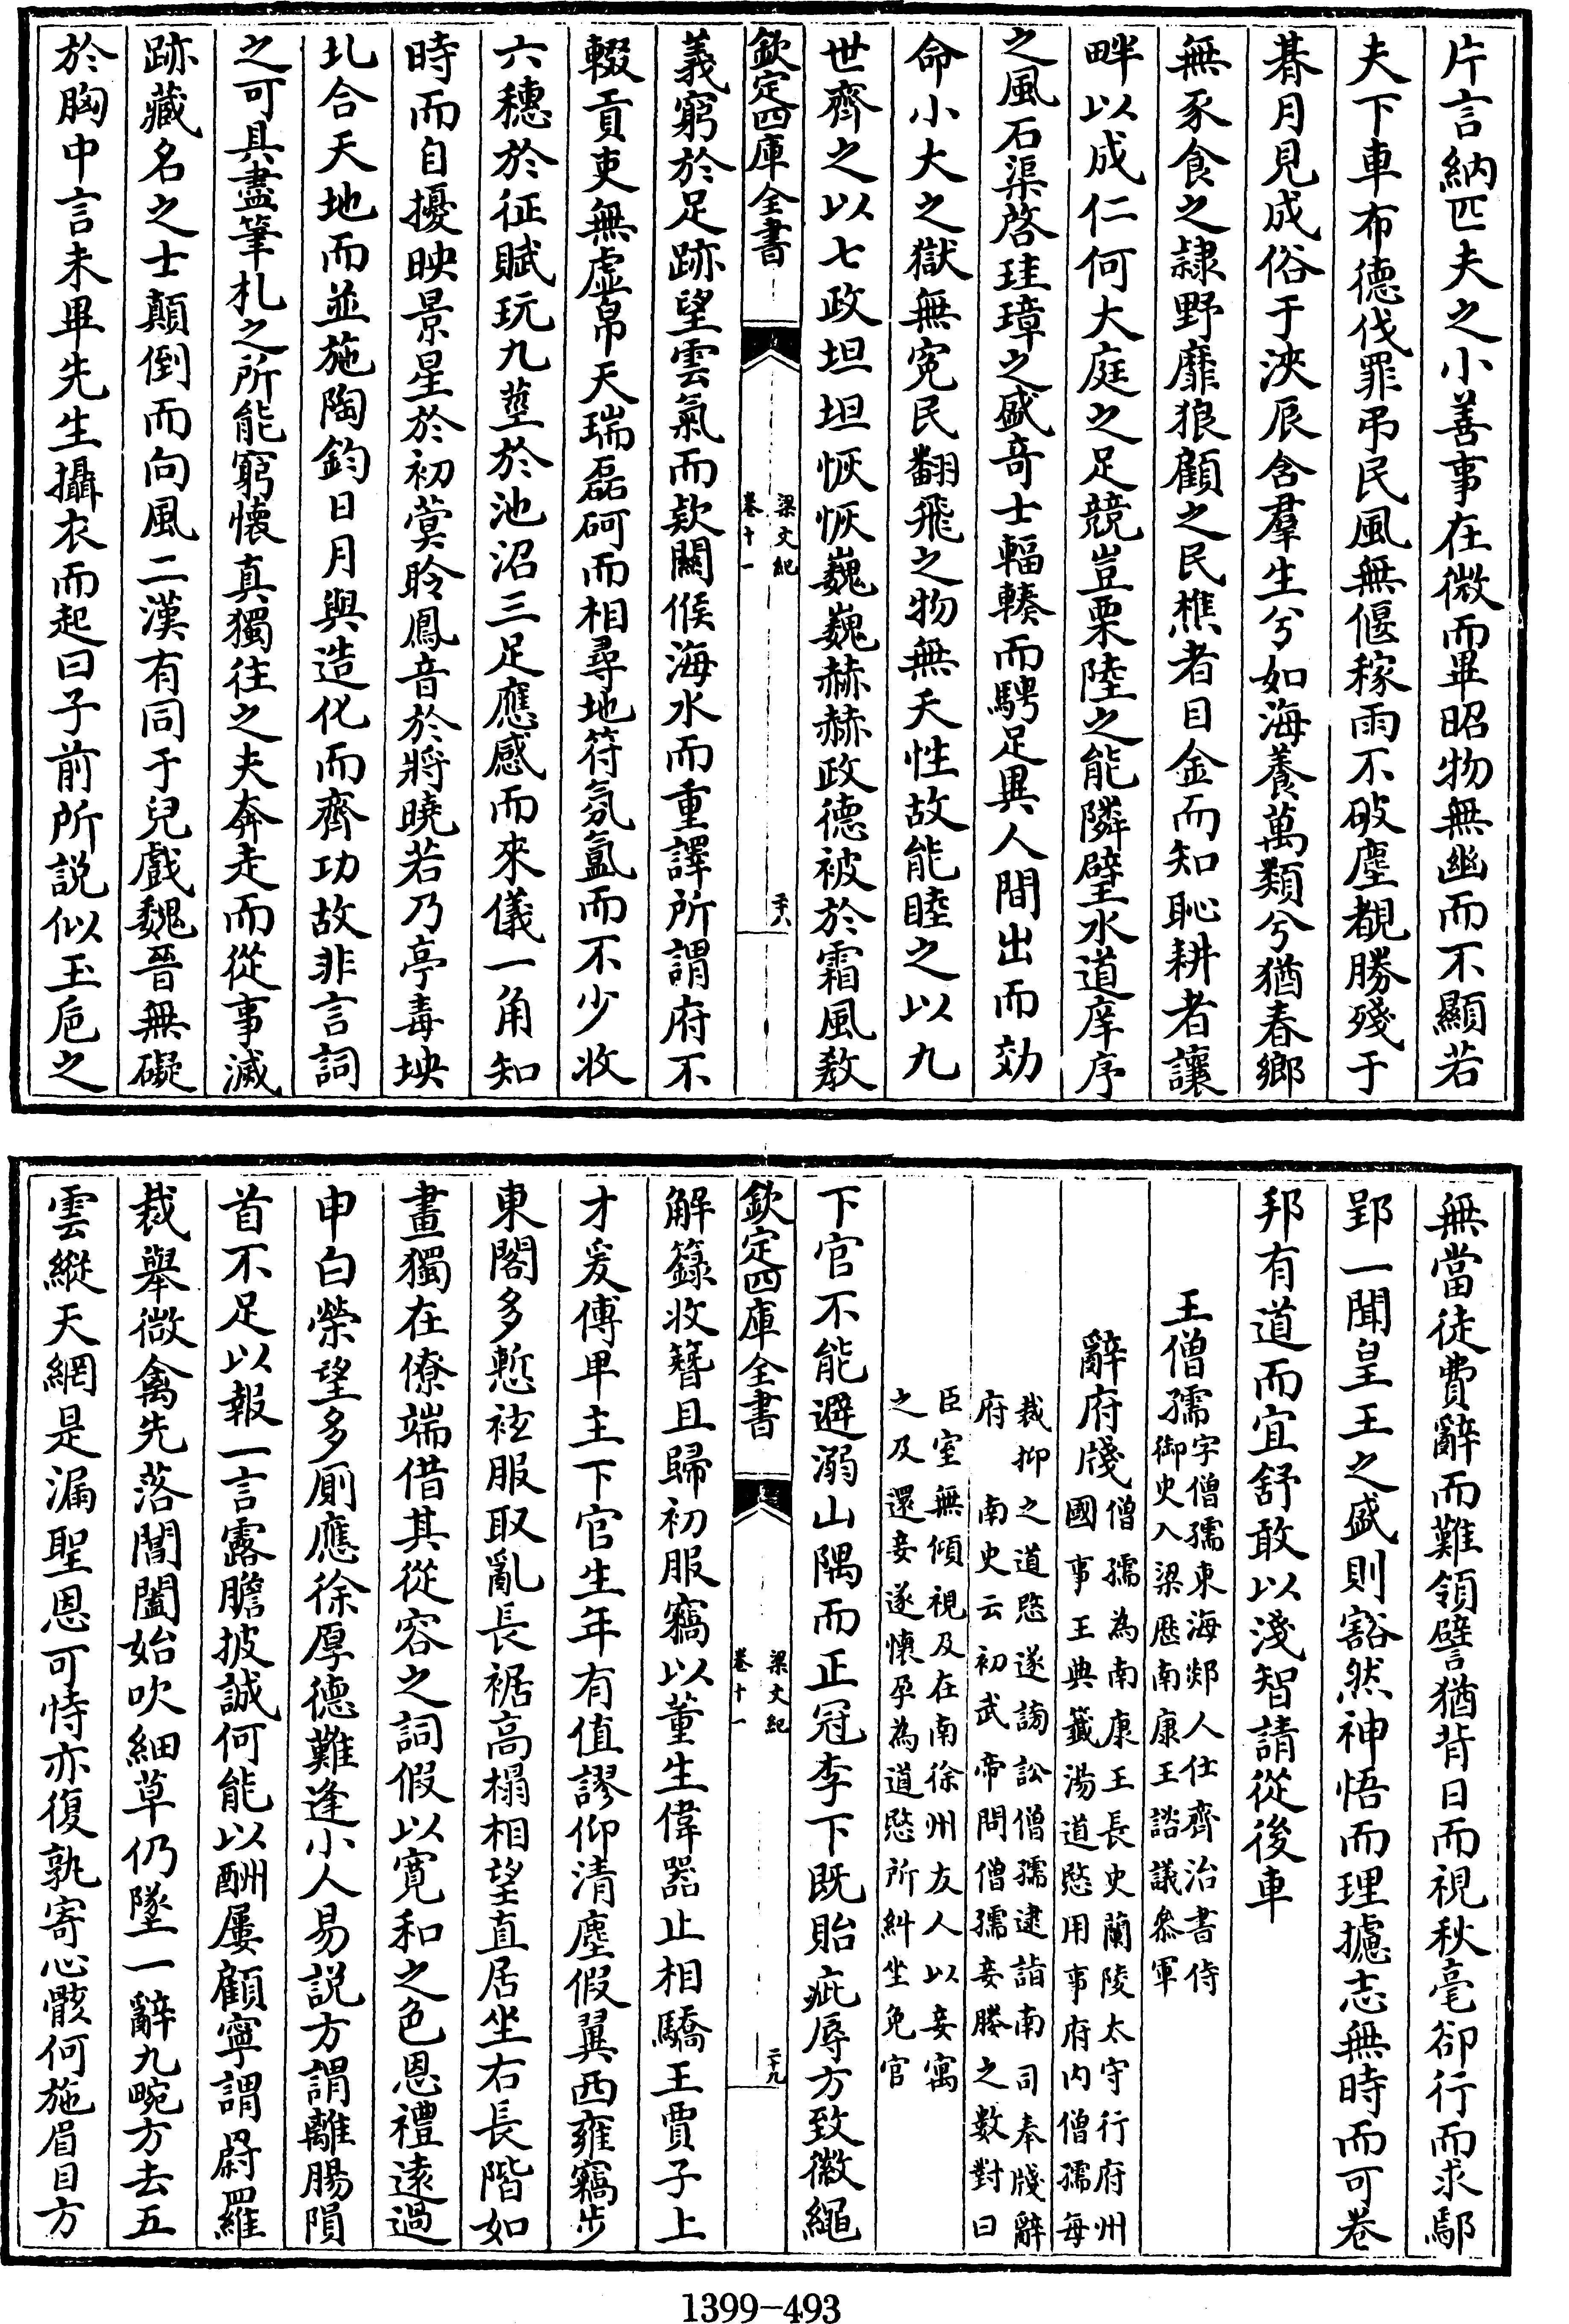 片言納匹夫之小善事在微而畢昭物無幽而不顯若
夫下車布德伐罪弔民風無偃稼雨不破塵覩勝殘于
朞月見成俗于浹辰含羣生兮如海養萬類兮猶春鄉
無豕食之隷野靡狼顧之民樵者目金而知恥耕者讓
畔以成仁何大庭之足競豈栗陸之能隣璧水道庠序
之風石渠啓珪璋之盛竒士輻輳而騁足異人間出而効
命小大之獄無寃民翻飛之物無夭性故能睦之以九
世齊之以七政坦坦恢恢巍巍赫赫政德被於霜風教
欽定四庫全書
梁文紀
卷十一
二十八
義窮於足跡望雲氣而欵關候海水而重譯所謂府不
輟貢吏無虛帛天瑞磊砢而相尋地符氛氲而不少收
六穗於征賦玩九莖於池沼三足應感而來儀一角知
時而自擾映景星於初蓂聆鳳音於將曉若乃亭毒坱
圠合天地而並施陶鈞日月與造化而齊功故非言詞
之可具盡筆札之所能窮懷真獨往之夫奔走而從事滅
跡藏名之士顛倒而向風二漢有同于兒戲魏晉無礙
於胸中言未畢先生攝衣而起曰子前所説似玉巵之
無當徒費辭而難領譬猶背日而視秋毫卻行而求鄢
郢一聞皇王之盛則豁然神悟而理攄志無時而可卷
邦有道而宜舒敢以淺智請從後車
王僧孺字僧孺東海郯人仕齊治書侍
御史入梁歴南康王諮議叅軍
辭府牋僧孺為南康王長史蘭陵太守行府州
國事王典籖湯道愍用事府内僧孺每
裁抑之道愍遂謗訟僧孺逮詣南司奉牋辭
府南史云初武帝問僧孺妾媵之數對曰
臣室無傾視及在南徐州友人以妾寓
之及還妾遂懷孕為道愍所糾坐免官
下官不能避溺山隅而正冠李下既貽疵辱方致徽繩
欽定四庫全書
梁文紀
卷十一
二十九
解籙收簪且歸初服竊以董生偉器止相驕王賈子上
才爰傅卑主下官生年有值謬仰清塵假翼西雍竊步
東閣多慙袨服取亂長裾高榻相望直居坐右長階如
畫獨在僚端借其從容之詞假以寛和之色恩禮逺過
申白榮望多厠應徐厚德難逢小人易説方謂離腸隕
首不足以報一言露膽披誠何能以酬屢顧寧謂罻羅
裁舉微禽先落閶闔始吹細草仍墜一辭九畹方去五
雲縱天網是漏聖恩可恃亦復孰寄心骸何施眉目方
1399-493